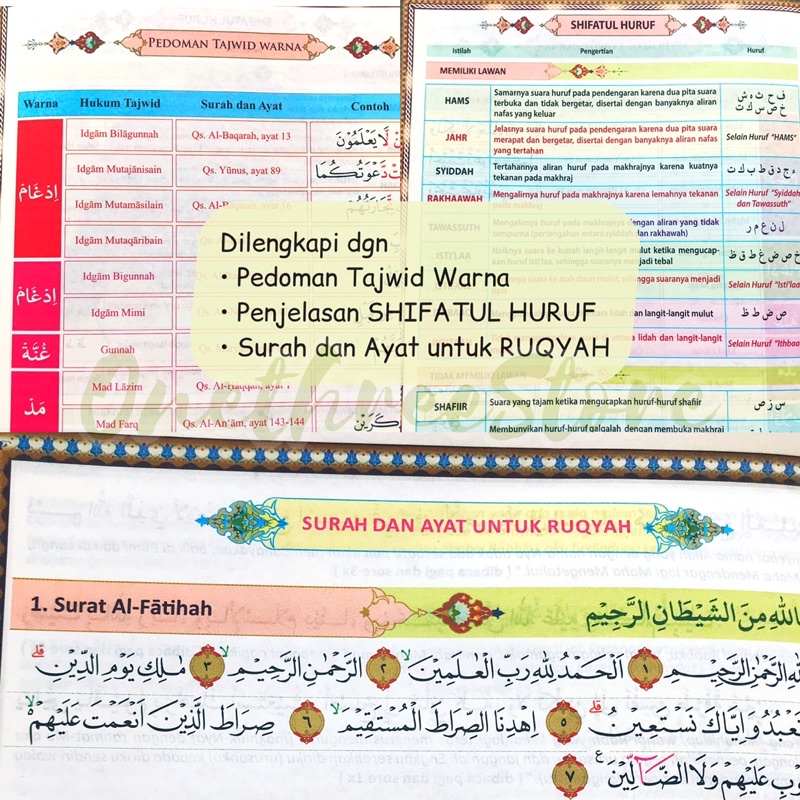 PEDOMAN TAJWID WARNA
Warna Hukum Tajwid Surah dan Ayat Contoh
اِدْغَامْ
Idgām Bilāgunnah Qs. Al-Baqarah, ayat 13 لَا يَعْلَمُوْنَ
Idgām Mutajānisain Qs. Yūnus, ayat 89 دَّعْوَتُكُمَا
Idgām Mutamāsilain Qs. Al-Baqarah, ayat 16 تِّجَارَتُهُمْ
Idgām Mutaqāribain
اِدْغَامْ
Idgām Bigunnah
Idgām Mimi
غُنَّةْ
Gunnah
مَدّ
Mad Lāzim Qs. Al-Ḥāqqah, ayat 1
Mad Farq Qs. Al-An'ām, ayat 143-144
SHIFATUL HURUF
Istilah Pengertian Huruf
MEMILIKI LAWAN
HAMS Samarnya suara huruf pada pendengaran karena dua pita suara
terbuka dan tidak bergetar, disertai dengan banyaknya aliran
nafas yang keluar
ف ح ث ه ش
خ ص س ك ت
JAHR Jelasnya suara huruf pada pendengaran karena dua pita suara
merapat dan bergetar, disertai dengan banyaknya aliran nafas
yang tertahan
Selain Huruf "HAMS"
SYIDDAH Tertahannya aliran huruf pada makhrajnya karena kuatnya
tekanan pada makhraj
ء ج د ق ط ب ك ت
RAKHAAWAH Mengalirnya huruf pada makhrajnya karena lemahnya tekanan
pada makhraj
Selain Huruf "Syiddah
dan Tawassuth"
TAWASSUTH Mengalirnya huruf pada makhrajnya dengan aliran yang tidak
sempurna (pertengahan antara syiddah dan rakhawah)
ل ن ع م ر
ISTI'LAA Naiknya suara ke kubah langit-langit mulut ketika mengucap-
kan huruf isti'laa, sehingga suaranya menjadi tebal
خ ص ض غ ط ق ظ
ke arah dasar mulut, sehingga suaranya menjadi
Selain Huruf "Isti'laa"
lidah dan langit-langit mulut
ص ض ط ظ
antara lidah dan langit-langit
Selain Huruf "Ithbaa
TIDAK MEMILIKI LAWAN
SHAFIIR Suara yang tajam ketika mengucapkan huruf-huruf shafiir س ز ص
Membunyikan huruf-huruf qalqalah dengan membuka makhraj
Dilengkapi dgn
• Pedoman Tajwid Warna
• Penjelasan SHIFATUL HURUF
• Surah dan Ayat untuk RUQYAH
Onethreestore
SURAH DAN AYAT UNTUK RUQYAH
1. Surat Al-Fātiḥah
بِاللّٰهِ مِنَ الشَّيْطَانِ الرَّجِيْمِ
اللّٰهِ الرَّحْمٰنِ الرَّحِيْمِ ١ اَلْحَمْدُ لِلّٰهِ رَبِّ الْعٰلَمِيْنَ ٢ الرَّحْمٰنِ الرَّحِيْمِ ٣ مٰلِكِ يَوْمِ الدِّيْنِ
نَعْبُدُ وَاِيَّاكَ نَسْتَعِيْنُ ٥ اِهْدِنَا الصِّرَاطَ الْمُسْتَقِيْمَ ٦ صِرَاطَ الَّذِيْنَ اَنْعَمْتَ عَلَيْهِمْ
عَلَيْهِمْ وَلَا الضَّاۤلِّيْنَ ٧